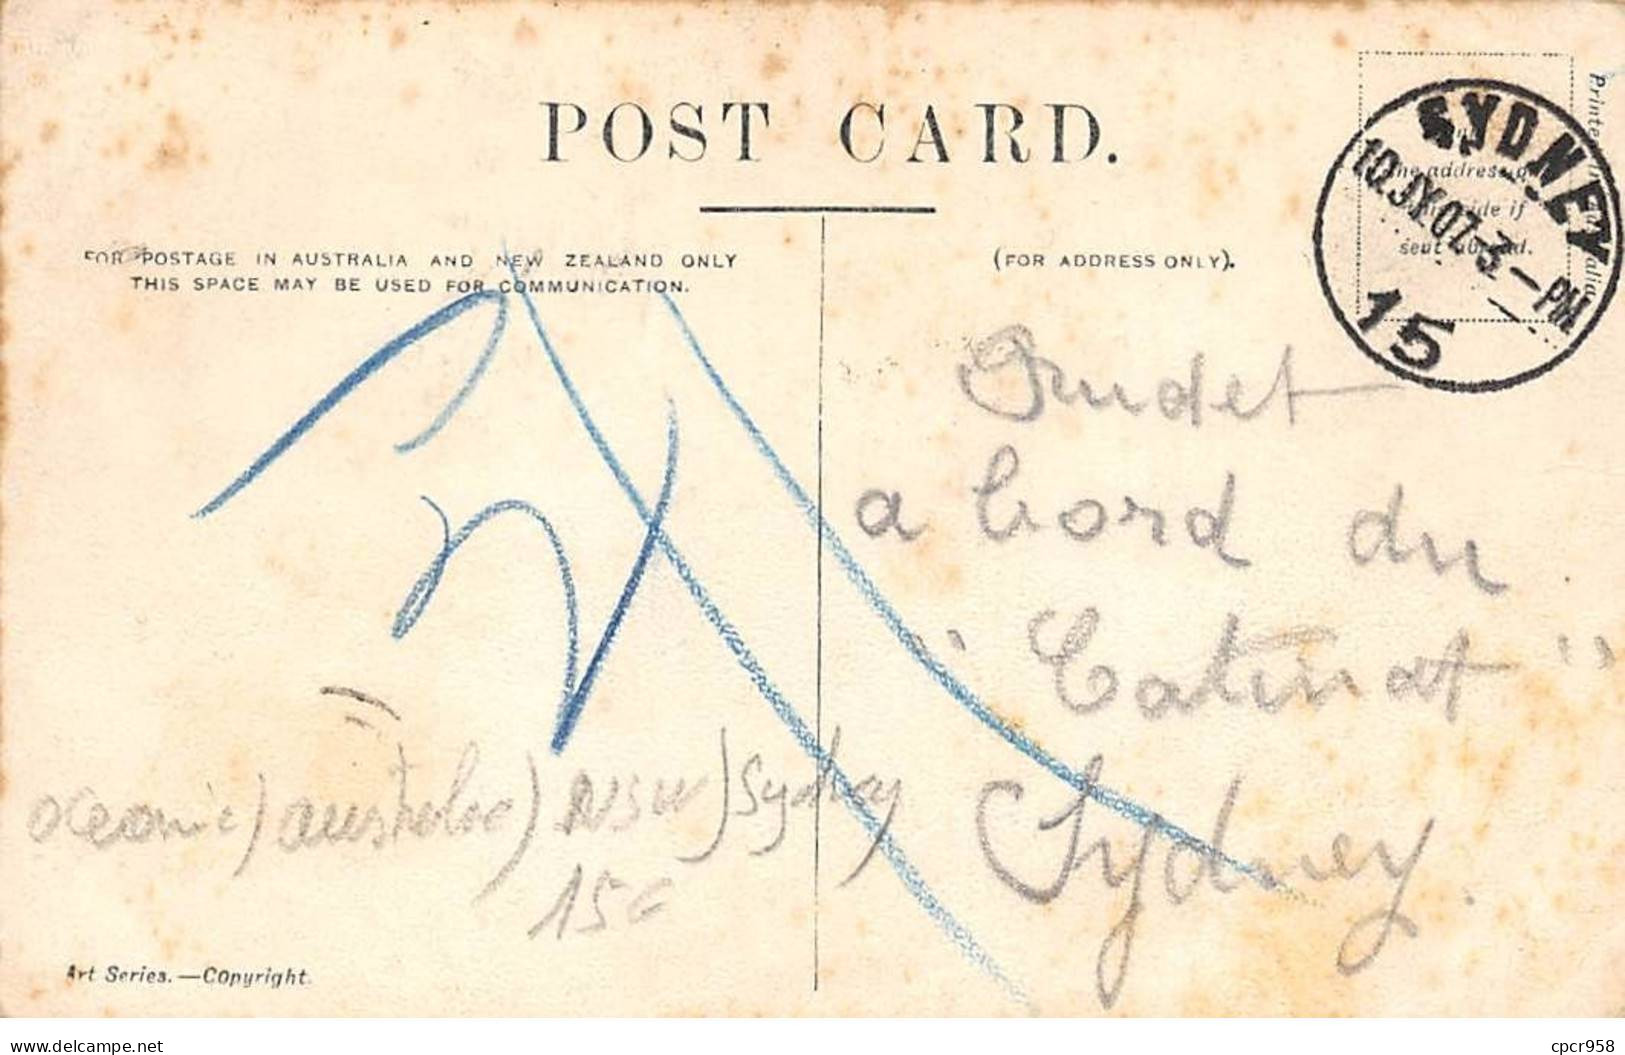 POST CARD.
FOR POSTAGE IN AUSTRALIA AND NEW ZEALAND ONLY
THIS SPACE MAY BE USED FOR COMMUNICATION.
(FOR ADDRESS ONLY).
the address
side if
sent abroad.
SYDNEY
10.JY.07.3-PM
15
a bord du
"Catinat"
Sydney.
oceanie) australie) NSW) Sydney
15€
Art Series.—Copyright.
delcampe.net
cpcr958